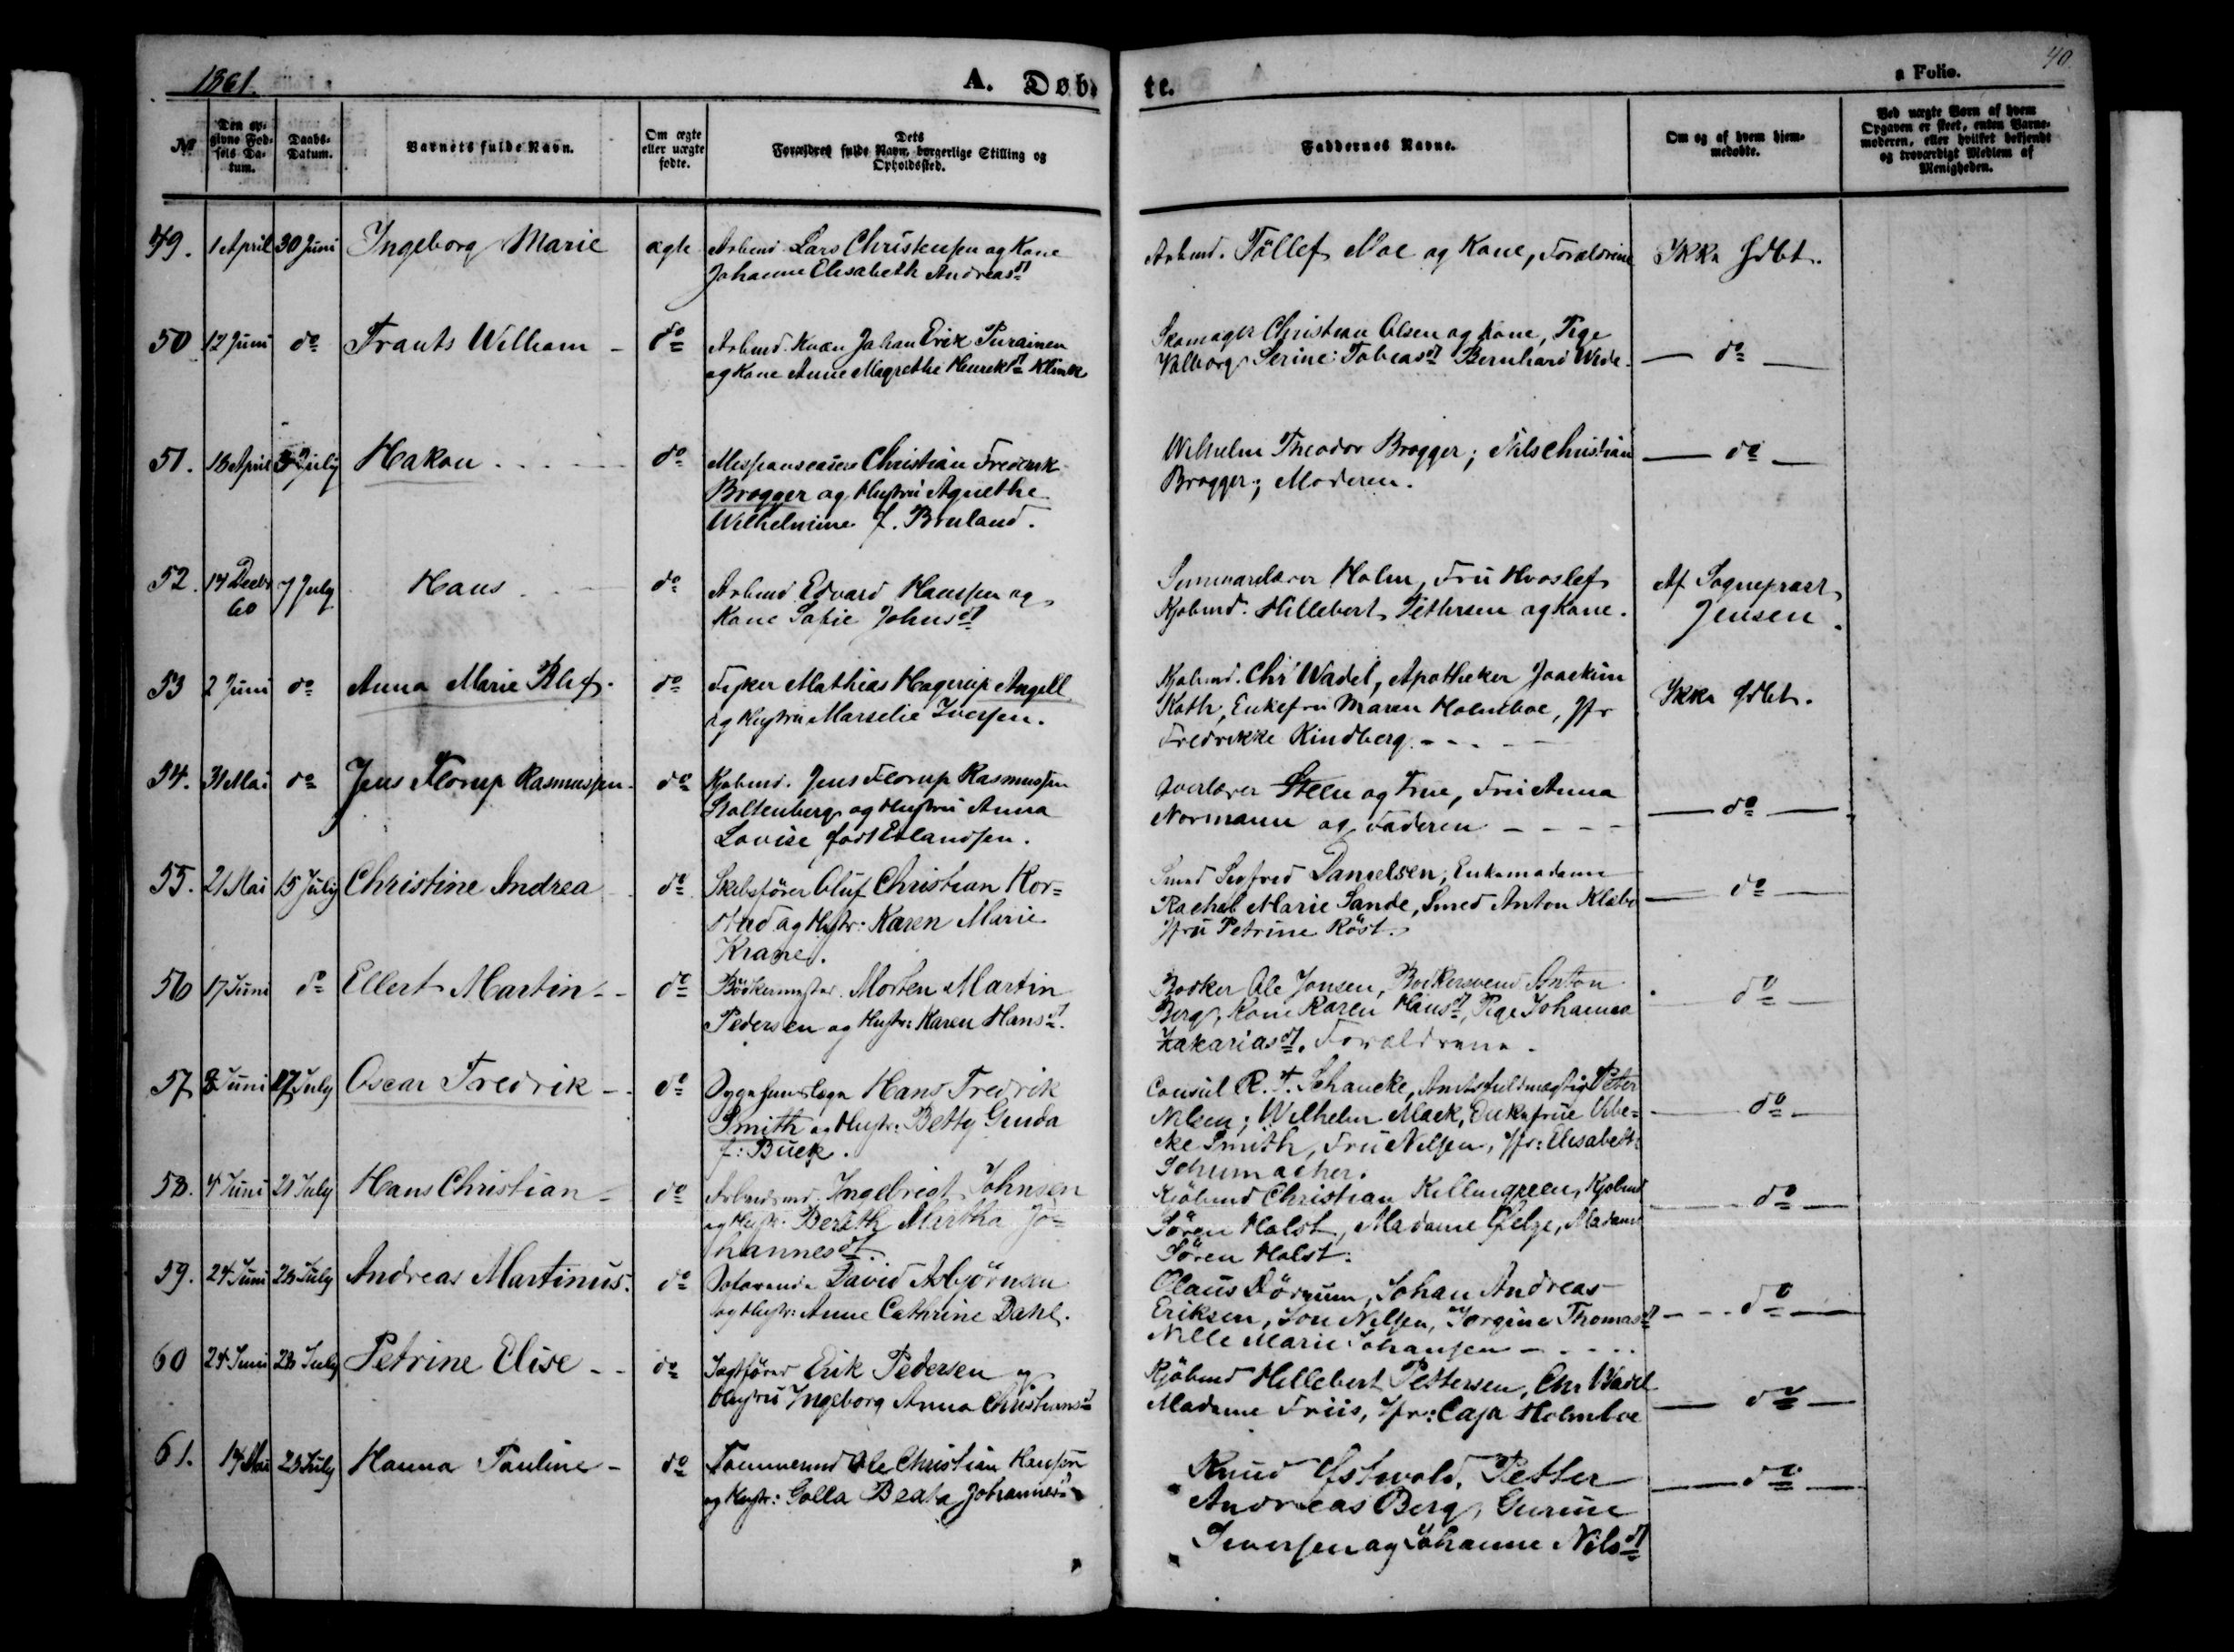 1861.
A. Døb-
te.
a Folio.
40
№
Den op-
givne Fød-
sels Da-
tum.
Daabs-
Datum.
Barnets fulde Navn.
Om ægte
eller uægte
fødte.
Dets
Forældres fulde Navn, borgerlige Stilling og
Opholdssted.
Faddernes Navne.
Om og af hvem hjem-
medøbte.
Ved uægte Børn af hvem
Opgaven er skeet, enten Barne-
moderen, eller hvilket bekjendt
og troværdigt Medlem af
Menigheden.
49. 1 April 30 Juni Ingeborg Marie ægte Arbmd. Lars Christensen og Kone
Johanne Elisabeth Andreasdt
Arbmd. Tollef Moe og Kone, Forældrene
Ikke hdbt.
50 12 Juni do Frants Wilhem - do Arbmd. Kvæn Johan Erik Purainen
og Kone Anne Magrethe Henriksdt
Skomager Christian Olsen og Kone, Pige
Valborg Serine Tobiasdt Bernhard Wide
do
51. 18 April 5 July Hakon do Christian Frederik
Brøgger og Hustru Agnethe
Wilhelmine f. Bruland.
Wilhelm Theodor Brøgger; Nils Christian
Brøgger; Moderen.
do
52. 14 Decbr 60 7 July Hans do Arbmd Edvard Hanssen og
Kone Sofie Johnsdt
Seminarlærer Holm, Fru Hvoslef
Kjøbmd. Hillebert Pettersen og Kone.
Af Sognepræst
Jensen.
53 2 Juni do Anna Marie Blix do Mathias Hagerup Angell
og Hustru Marselie Iversen.
Kjøbmd. Chr Wadel, Apotheker Joackim
Koth, Enkefru Maren Holmboe, Jfr
Fredrikke Kindberg
Ikke hdbt.
54. 31 Mai do Jens Florup Rasmussen do Kjøbmd. Jens Florup Rasmussen
Stoltenberg og Hustru Anna
Lovise født Erlandsen.
Overlærer Steen og Frue, Fru Anna
Normann og Faderen
do
55. 21 Mai 15 July Christine Andrea do Skibsfører Oluf Christian Kor-
og Hustr: Karen Marie
Krane.
Smed Sigfred Danielsen, Enkemadame
Rachel Marie Sande, Smed Anton Klæbo
Jfru Petrine Röst.
do
56 17 Juni do Ellert Martin do Bödkermester Morten Martin
Pedersen og Hustr: Karen Hansdt.
Bödker Ole Jonsen, Bödkersvend Anton
Berg, Kone Karen Hansdt, Pige Johanna
Zakariasdt. Forældrene.
do
57 8 Juni 17 July Oscar Fredrik do Sygehuuslæge Hans Fredrik
Smith og Hustr: Betty Gunda
f: Buck.
Consul R. F. Schancke, Amtsfuldmægtig Peter
Nilsen; Wilhelm Mack, Enkefrue Vibe-
cke Smith, Fru Nilsen, Jfr: Elisabeth
Schumacher.
do
58. 4 Juni 21 July Hans Christian do Arbeidsmd. Ingebrigt Johnsen
og Hustr. Bereth Martha Jo-
hannesdt.
Kjöbmd Christian Killengreen, Kjøbmd
Sören Holst, Madame Madame
Sören Holst.
do
59. 24 Juni 28 July Andreas Martinus. do David Asbjörnsen
og Hustr: Anne Cathrine Dahl.
Olaus Johan Andreas
Eriksen, Jon Nilsen, Jorgine Thomasdt
Nille Marie Johansen
do
60 24 Juni 28 July Petrine Elise do Jagtfører Erik Pedersen og
Hustru Ingeborg Anna Christiansdt
Kjöbmd Hillebert Pettersen, Chr Wadel
Madame Friis, Jfr: Caja Holmboe
do
61. 14 Mai 28 July Hanna Pauline do Tømmermd Ole Christian Hansen
og Hustr: Golla Beata Johannesdt
Knud Petter
Andreas Berg, Gurine
Iversen og Johanne Nilsdt
do